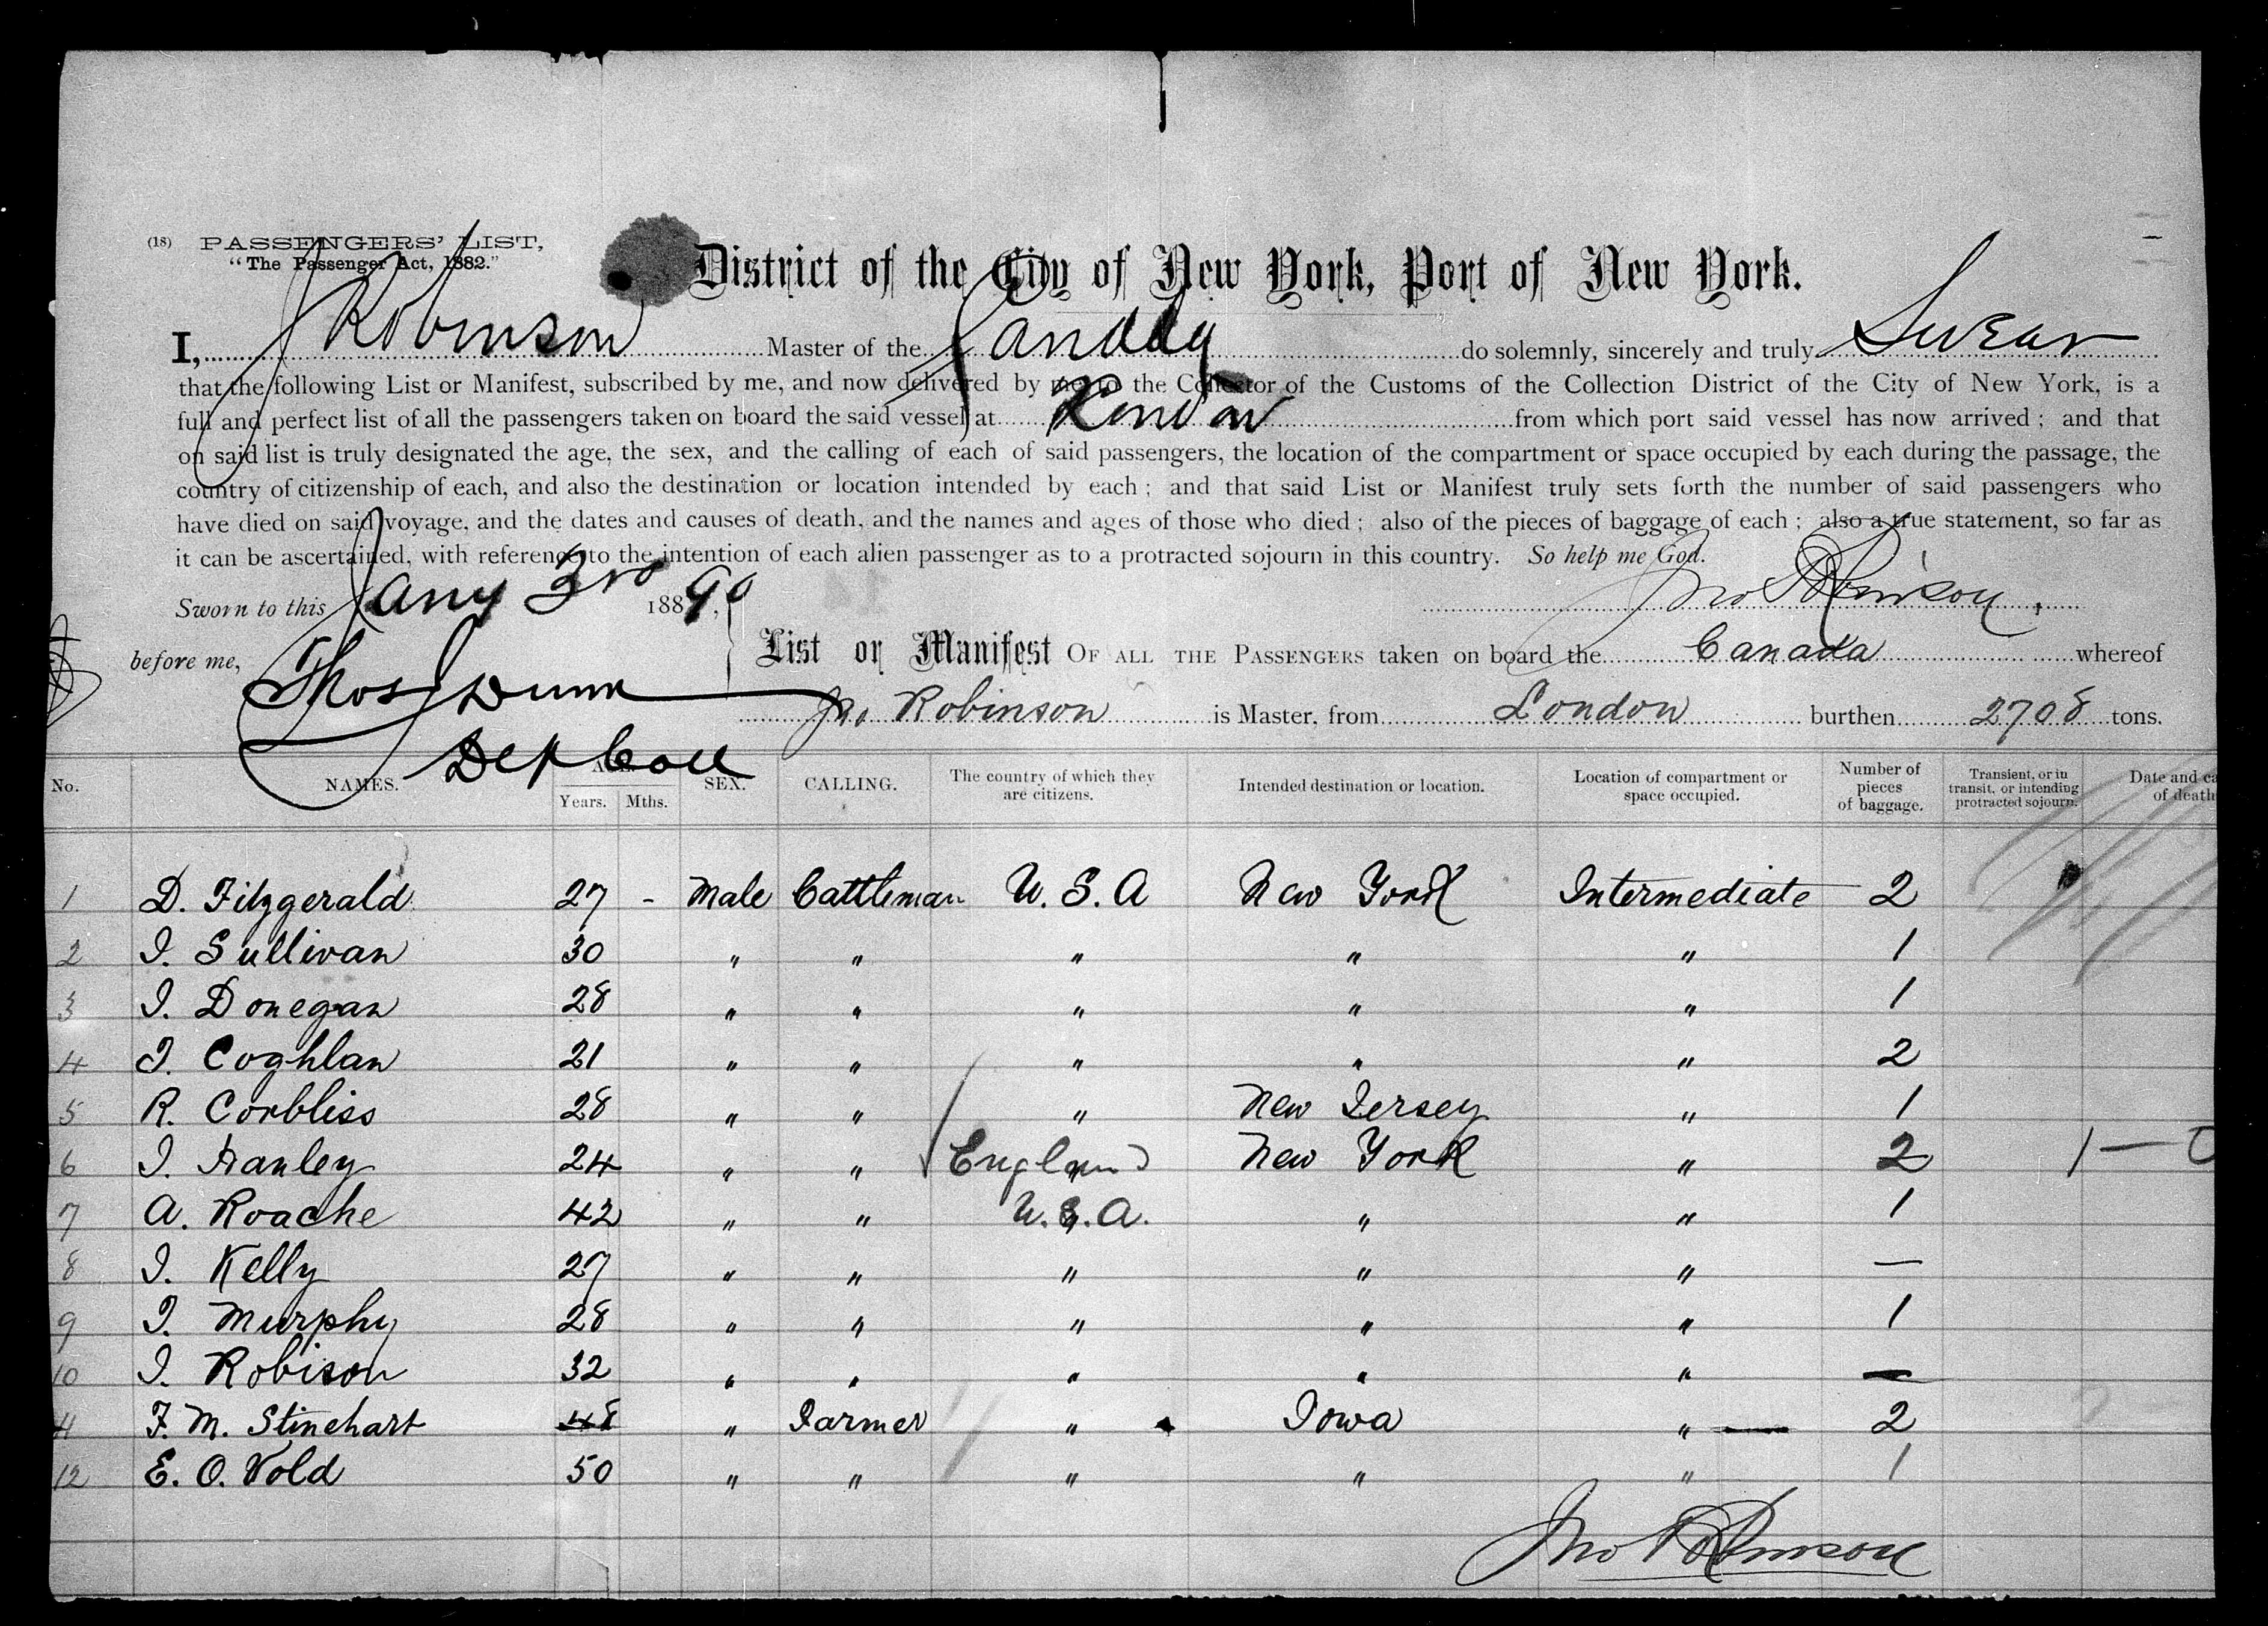 (18) PASSENGERS' LIST,
"The Passenger Act, 1882."
District of the City of New York, Port of New York.
I, J Robinson Master of the Canada do solemnly, sincerely and truly Swear
that the following List or Manifest, subscribed by me, and now delivered by me to the Collector of the Customs of the Collection District of the City of New York, is a
full and perfect list of all the passengers taken on board the said vessel at London from which port said vessel has now arrived; and that
on said list is truly designated the age, the sex, and the calling of each of said passengers, the location of the compartment or space occupied by each during the passage, the
country of citizenship of each, and also the destination or location intended by each; and that said List or Manifest truly sets forth the number of said passengers who
have died on said voyage, and the dates and causes of death, and the names and ages of those who died; also of the pieces of baggage of each; also a true statement, so far as
it can be ascertained, with reference to the intention of each alien passenger as to a protracted sojourn in this country. So help me God.
Sworn to this Jany 3rd 18890, Jno Robinson
before me, Thos Dunn
Dep Coll
List or Manifest OF ALL THE PASSENGERS taken on board the Canada whereof
Jno Robinson is Master, from London burthen 2708 tons.
No. NAMES. AGE. Years. Mths. SEX. CALLING. The country of which they are citizens. Intended destination or location. Location of compartment or space occupied. Number of pieces of baggage. Transient, or in transit, or intending protracted sojourn. Date and ca of death
1 D. Fitzgerald 27 - Male Cattleman U.S.A New York Intermediate 2
2 J. Sullivan 30 " " " " " 1
3 J. Donegan 28 " " " " " 1
4 J. Coghlan 21 " " " " " 2
5 R. Corbliss 28 " " " New Jersey " 1
6 J. Hanley 24 " " England New York " 2 1 —
7 A. Roache 42 " " U.S.A. " " 1
8 J. Kelly 27 " " " " " —
9 J. Murphy 28 " " " " " 1
10 J. Robison 32 " " " " " —
11 F. M. Stinehart 48 " Farmer " Iowa " 2
12 E. O. Vold 50 " " " " " 1
Jno Robinson